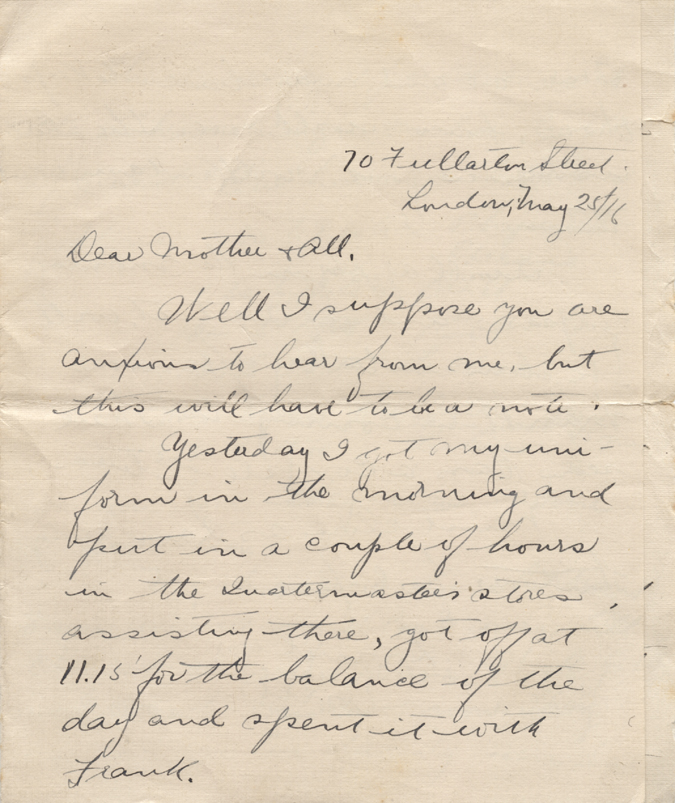 70 Fullarton Street.
London, May 25/16
Dear Mother & All.
Well I suppose you are
anxious to hear from me, but
this will have to be a note.
Yesterday I got my uni-
form in the morning and
put in a couple of hours
in the Quartermaster's stores,
assisting there, got off at
11.15 for the balance of the
day and spent it with
Frank.